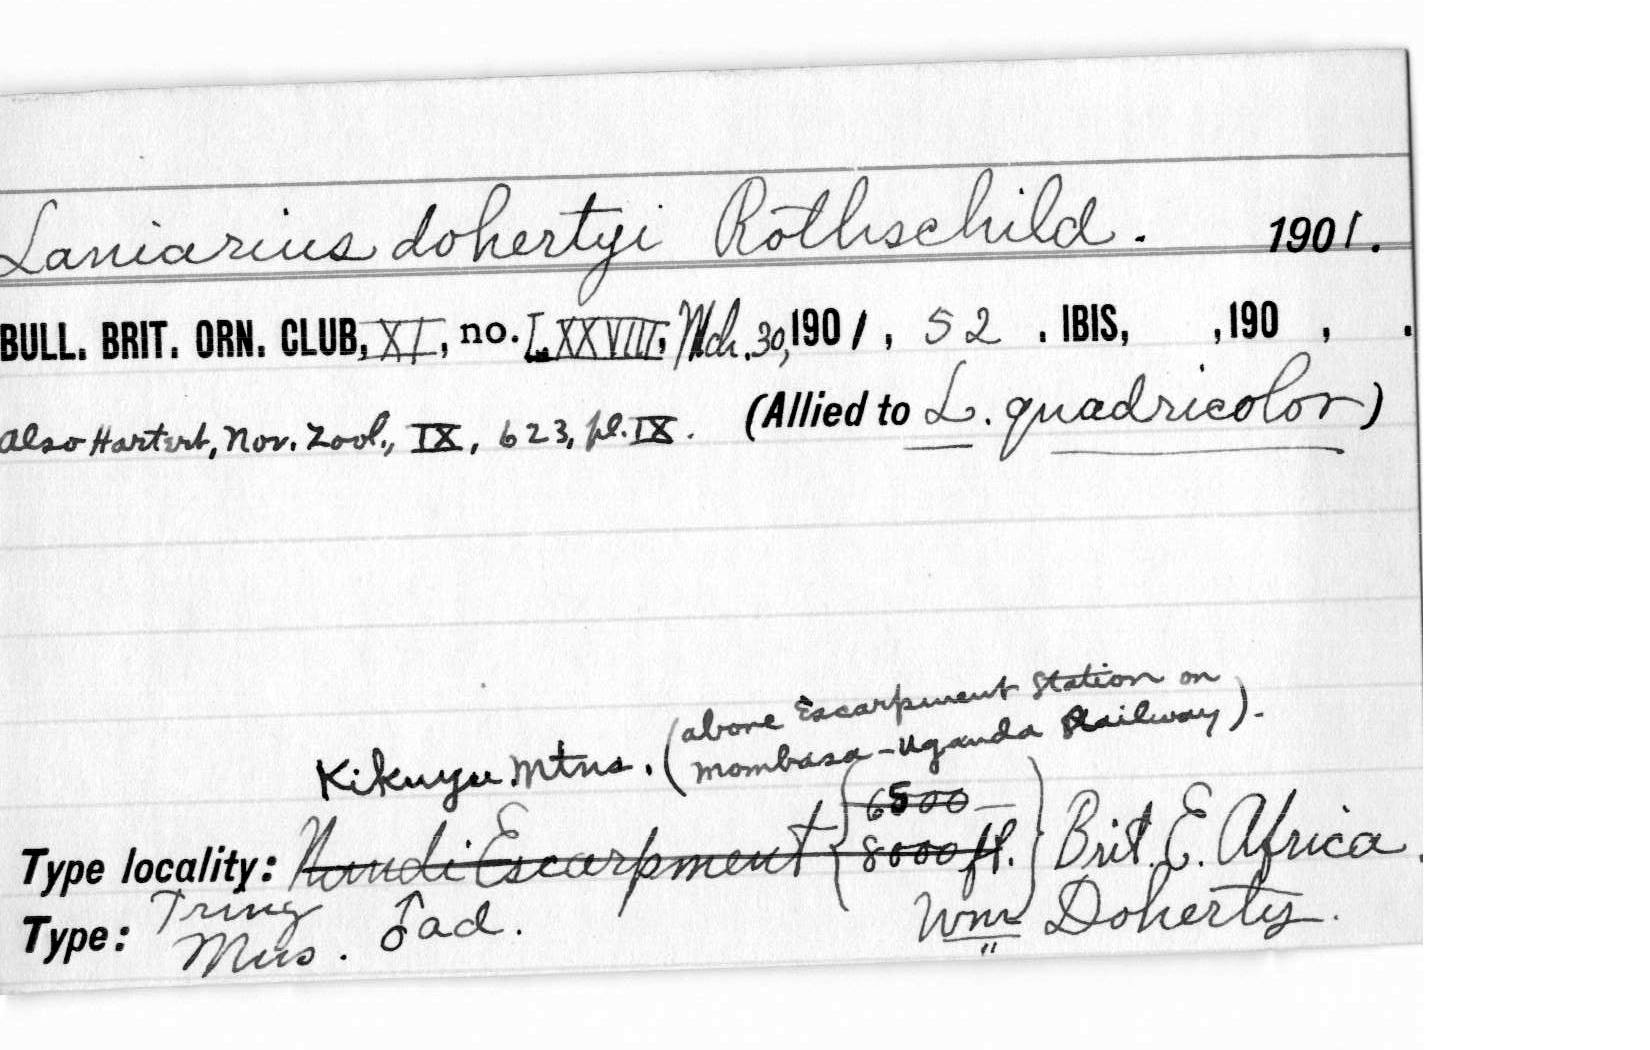 Laniarius dohertyi Rothschild. 1901.
BULL. BRIT. ORN. CLUB, XI, no. LXXVIII, Mch. 30, 1901, 52 . IBIS, , 190 , .
also Hartert, Nov. Zool., IX, 623, pl. IX. (Allied to L. quadricolor)
(above Escarpment Station on
Kikuyu Mtns. Mombasa-Uganda Railway).
6500-
Type locality: Nandi Escarpment 8000 ft. Brit. E. Africa.
Type: Tring Mus. ♂ ad. Wm Doherty.